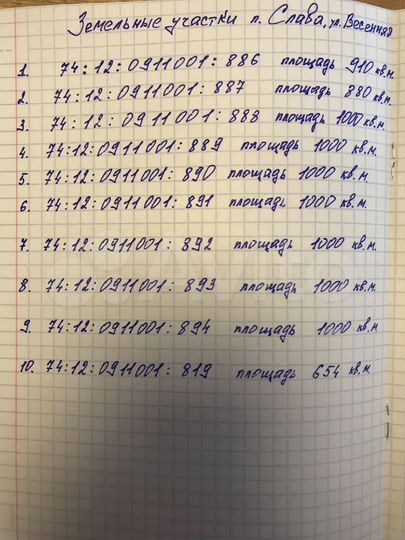 Земельные участки п. Слава, ул. Весенняя
1. 74:12:0911001:886 площадь 910 кв.м.
2. 74:12:0911001:887 площадь 880 кв.м.
3. 74:12:0911001:888 площадь 1000 кв.м.
4. 74:12:0911001:889 площадь 1000 кв.м.
5. 74:12:0911001:890 площадь 1000 кв.м
6. 74:12:0911001:891 площадь 1000 кв.м.
7. 74:12:0911001:892 площадь 1000 кв.м.
8. 74:12:0911001:893 площадь 1000 кв.м.
9. 74:12:0911001:894 площадь 1000 кв.м
10. 74:12:0911001:819 площадь 654 кв.м.